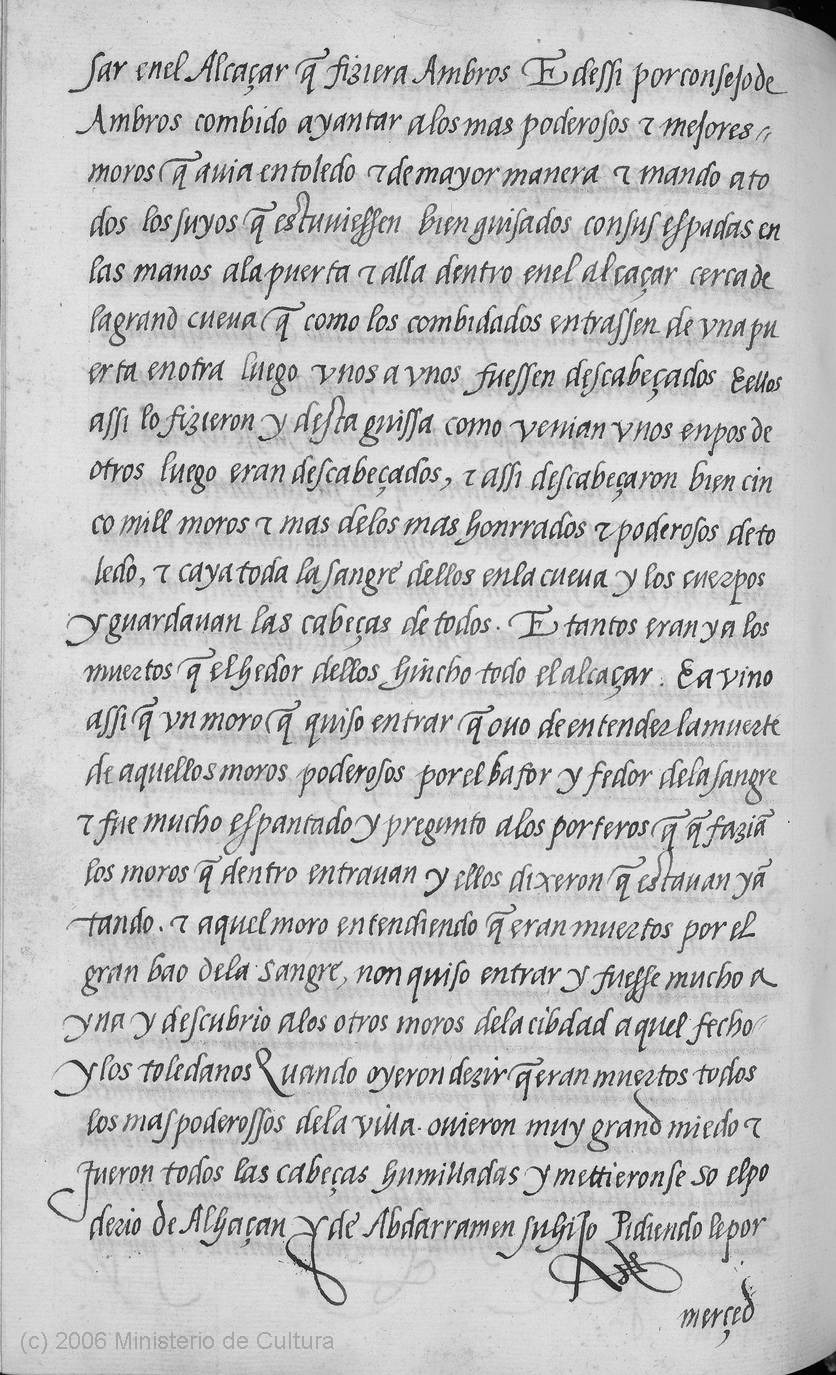 sar enel Alcaçar q̃ fiziera Ambros E dessi por consejo de
Ambros combido a yantar a los mas poderosos τ mejores
moros q̃ auia en toledo τ de mayor manera τ mando a to
dos los suyos q̃ estuuiessen bien guisados con sus espadas en
las manos ala puerta τ alla dentro enel alcaçar cerca de
la grand cueua q̃ como los combidados entrassen de vna pu
erta en otra luego vnos a vnos fuessen descabeçados E ellos
assi lo fizieron y desta guissa como venian vnos en pos de
otros luego eran descabeçados, τ assi descabeçaron bien cin
co mill moros τ mas delos mas honrrados τ poderosos de to
ledo, τ caya toda la sangre dellos en la cueua y los cuerpos
y guardauan las cabeças de todos. E tantos eran ya los
muertos q̃ el hedor dellos hincho todo el alcaçar. E a vino
assi q̃ vn moro q̃ quiso entrar q̃ ouo de entender la muerte
de aquellos moros poderosos por el bafor y fedor dela sangre
τ fue mucho espantado y pregunto a los porteros q̃ q̃ faziã
los moros q̃ dentro entrauan y ellos dixeron q̃ estauan yã
tando. τ aquel moro entendiendo q̃ eran muertos por el
gran bao dela sangre, non quiso entrar y fuesse mucho a
yna y descubrio alos otros moros dela cibdad aquel fecho
y los toledanos Quando oyeron dezir q̃ eran muertos todos
los mas poderossos dela villa. ouieron muy grand miedo τ
fueron todos las cabeças humilladas y mettieronse so el po
derio de Alhaçan y de Abdarramen su hijo Pidiendole por
merçed
(c) 2006 Ministerio de Cultura